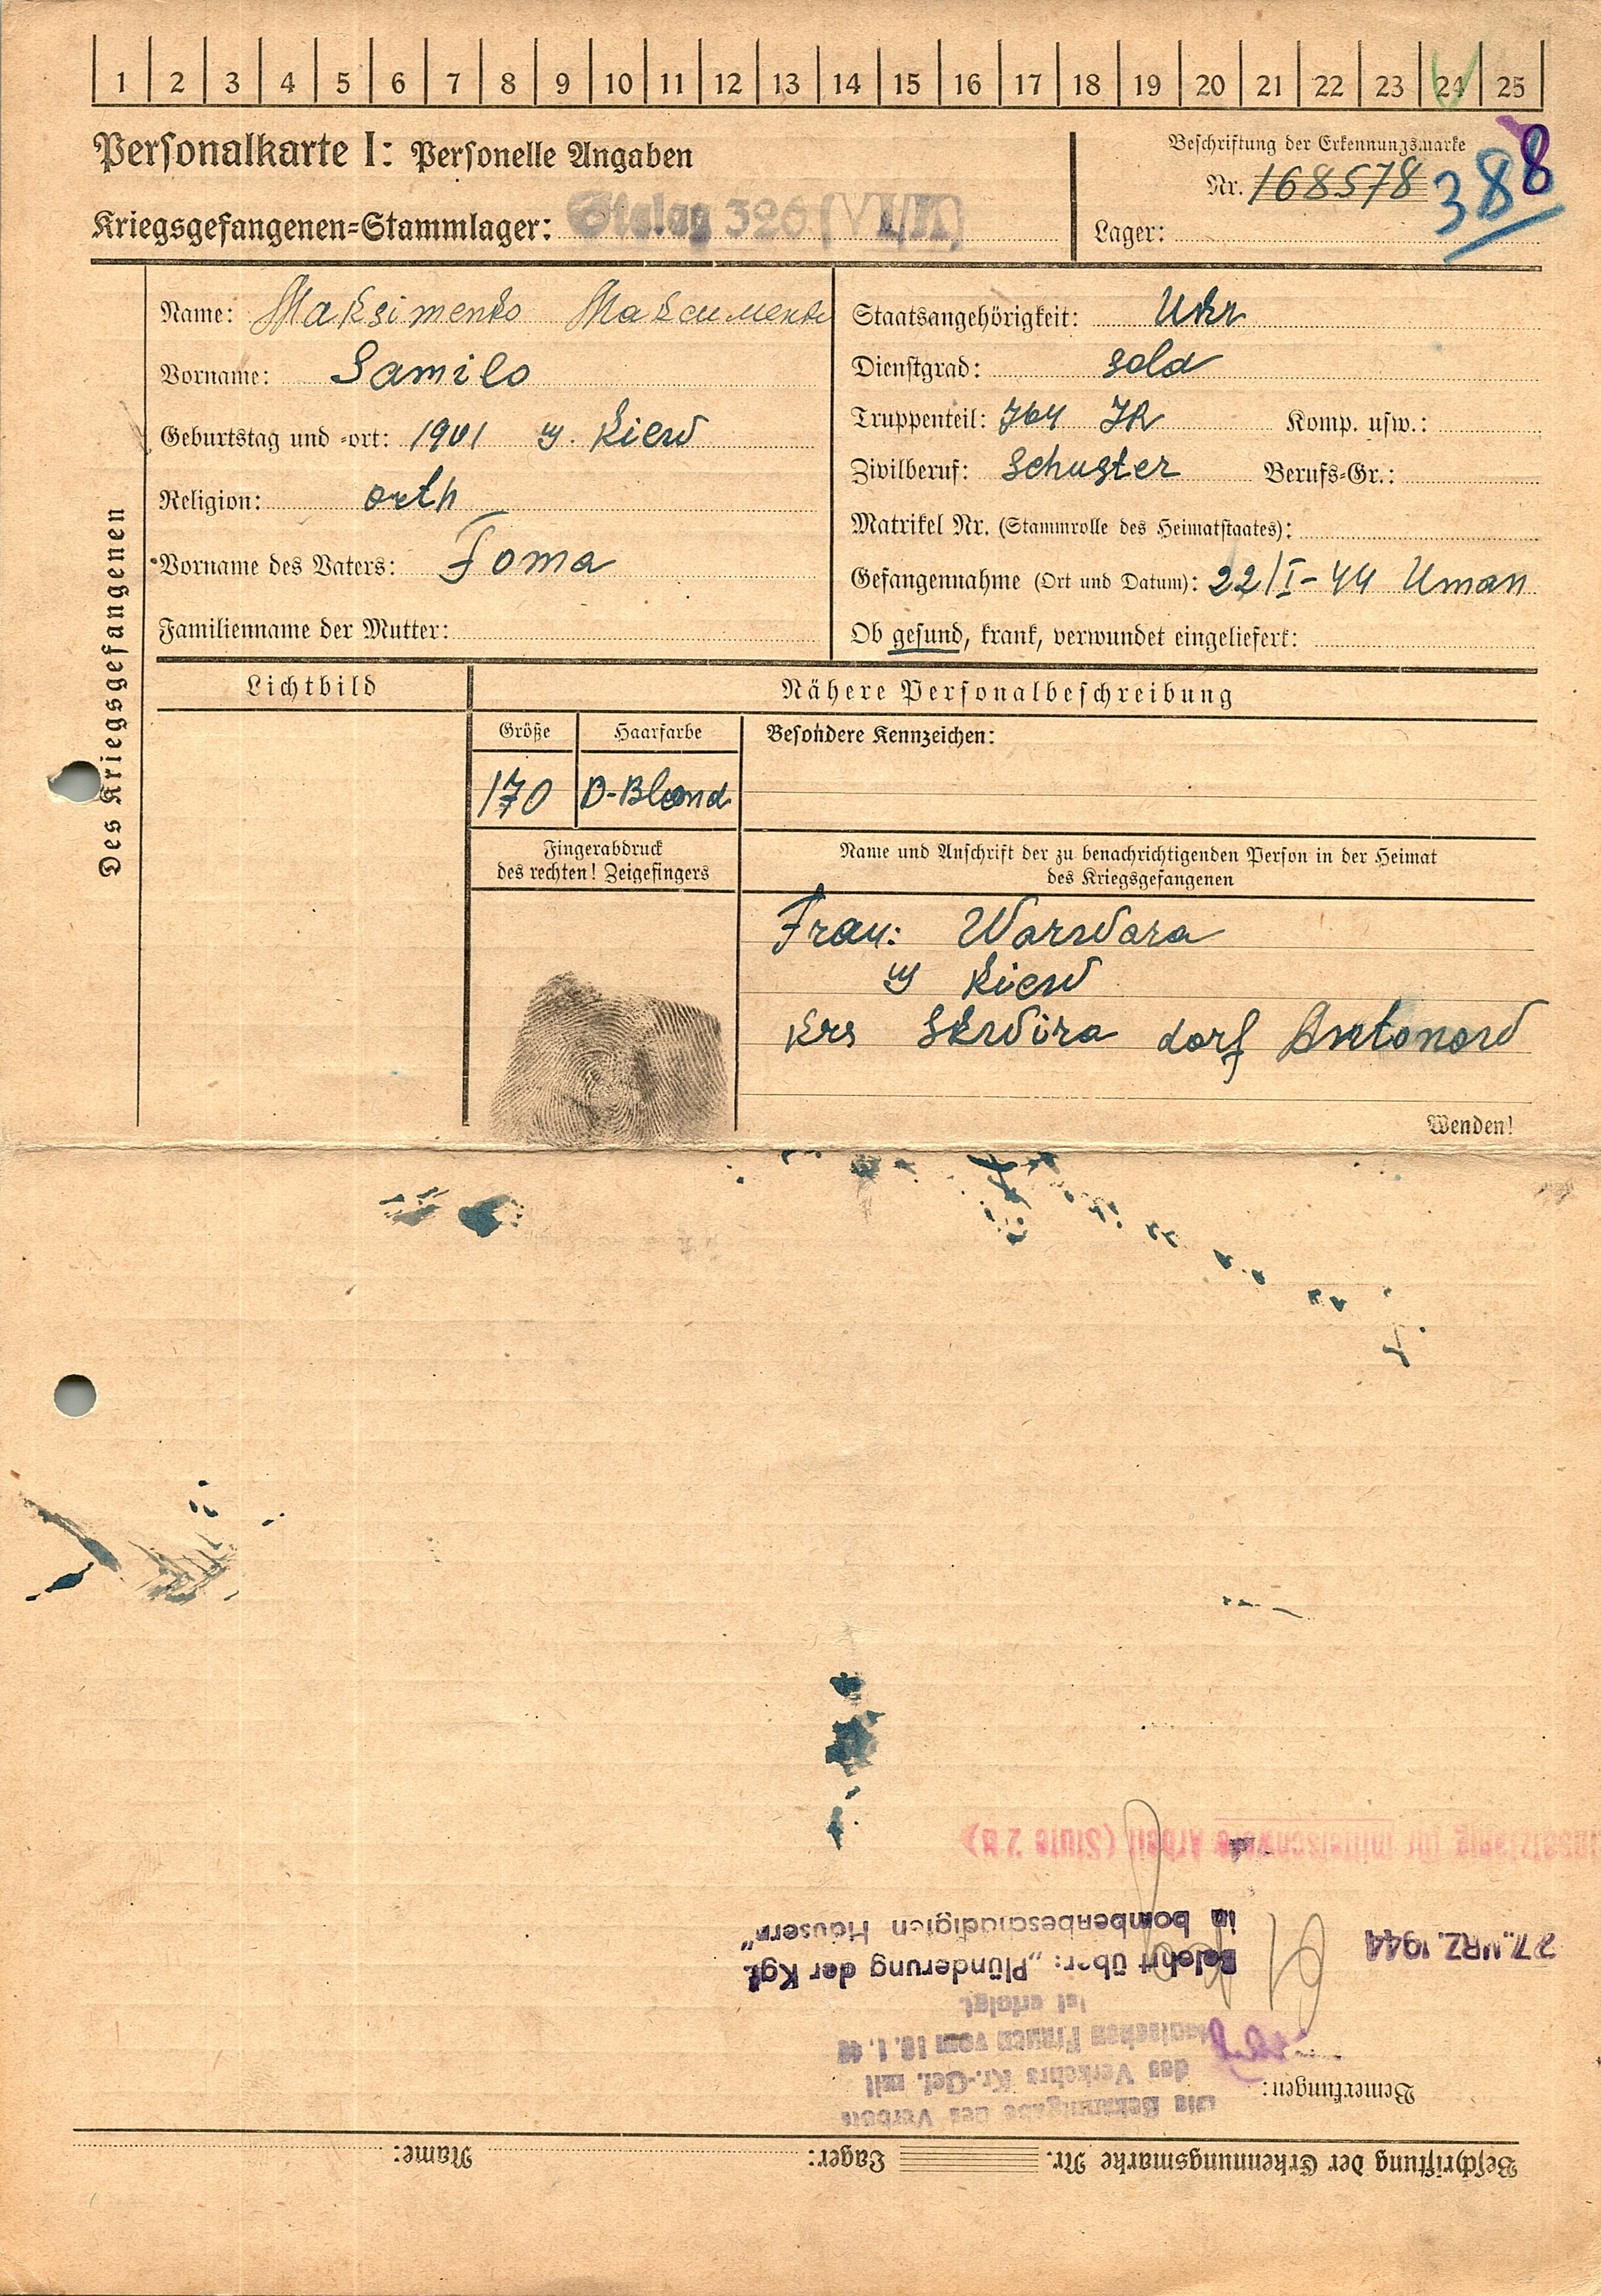 1 2 3 4 5 6 7 8 9 10 11 12 13 14 15 16 17 18 19 20 21 22 23 24 25
Personalkarte I: Personelle Angaben
Kriegsgefangenen=Stammlager: Stalag 326 (VI/K)
Beschriftung der Erkennungsmarke
Nr. 168578
388
Lager:
Des Kriegsgefangenen
Name: Maksimenko Максименко
Vorname: Samilo
Geburtstag und -ort: 1901 g. Kiew
Religion: orth
Vorname des Vaters: Foma
Familienname der Mutter:
Staatsangehörigkeit: Ukr
Dienstgrad: sold
Truppenteil: 764 JR Komp. usw.:
Zivilberuf: Schuster Berufs=Gr.:
Matrikel Nr. (Stammrolle des Heimatstaates):
Gefangennahme (Ort und Datum): 22/I-44 Uman
Ob gesund, krank, verwundet eingeliefert:
Lichtbild
Nähere Personalbeschreibung
Größe Haarfarbe Besondere Kennzeichen:
170 D-Blond
Fingerabdruck
des rechten! Zeigefingers
Name und Anschrift der zu benachrichtigenden Person in der Heimat
des Kriegsgefangenen
Frau: Warwara
g Kiew
Krs Skwira dorf Antonow
Wenden!
Beschriftung der Erkennungsmarke Nr. Lager: Name:
Bemerkungen:
Die Bekanntgabe des Verbots
des Verkehrs Kr.-Gef. mit
deutschen Frauen vom 10.1.40
ist erfolgt
Belehrt über: „Plünderung der Kgf.
in bombenbeschädigten Häusern"
27. MRZ. 1944
Einsatzfähig für mittelschwere Arbeit (Stufe 2 B)